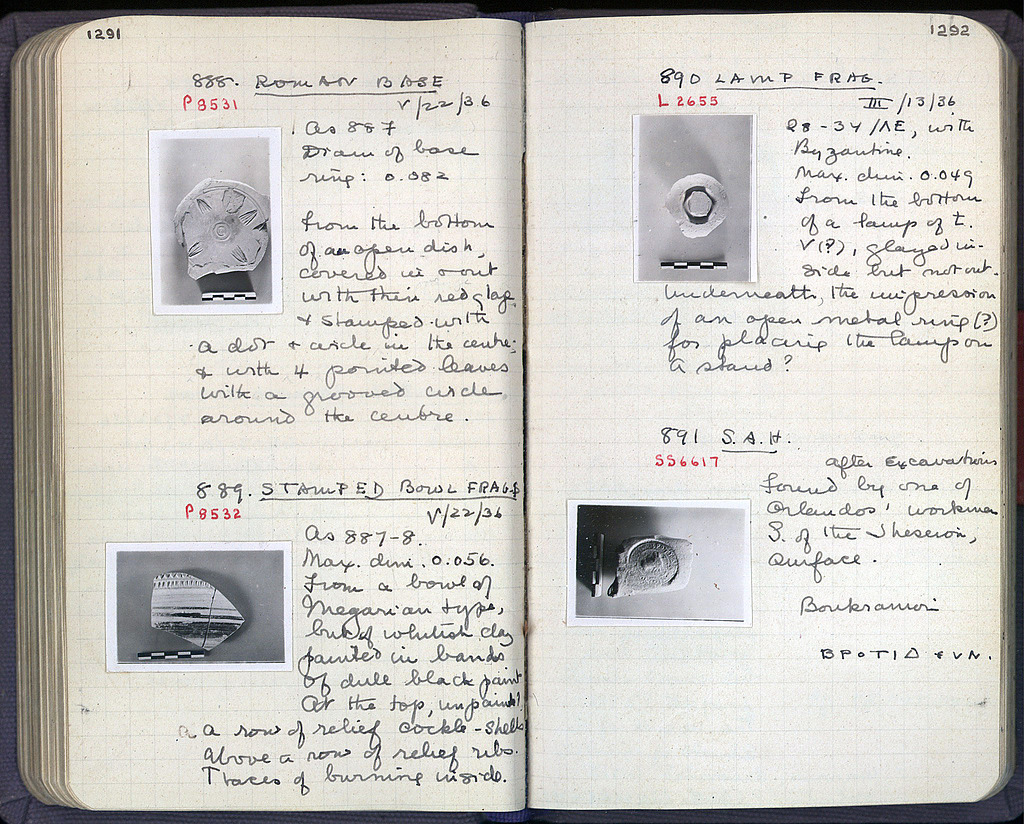 1291
888. ROMAN BASE
P 8531
V/22/36
As 887
Diam of base
ring: 0.082
From the bottom
of an open dish,
covered in & out
with thin red glaze
& stamped with
a dot & circle in the centre,
& with 4 pointed leaves
with a grooved circle
around the centre.
889. STAMPED BOWL FRAGS
P 8532
V/22/36
As 887-8.
Max. dim. 0.056.
From a bowl of
Megarian type,
but of whitish clay
painted in bands
of dull black paint
At the top, unpainted,
a row of relief cockle-shells
above a row of relief ribs.
Traces of burning inside.
1292
890 LAMP FRAG.
L 2655
III/13/36
28-34/ΛE, with
Byzantine.
Max. dim. 0.049
From the bottom
of a lamp of t.
V(?), glazed in-
side but not out.
Underneath, the impression
of an open metal ring (?)
for placing the lamp on
a stand?
891 S.A.H.
SS6617
after Excavations
Found by one of
Orlandos' workmen
S. of the Theseion,
surface.